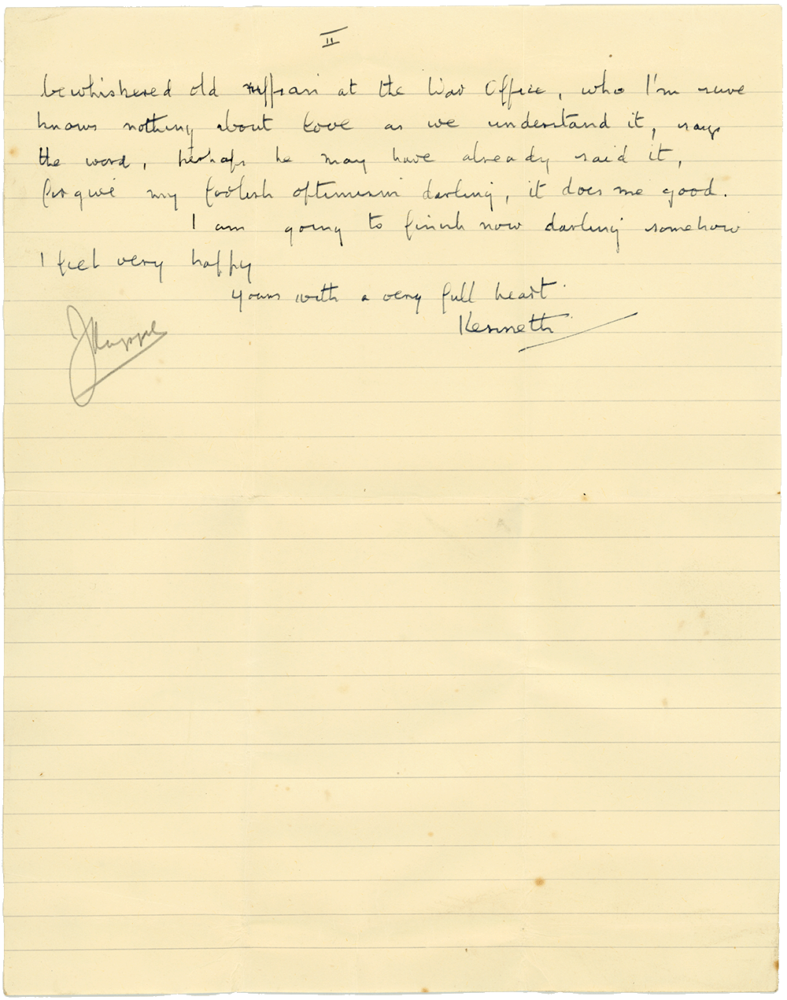 II
bewhiskered old ruffian at the War Office, who I'm sure
knows nothing about love as we understand it, says
the word, perhaps he may have already said it,
forgive my foolish optimism darling, it does me good.
I am going to finish now darling somehow
I feel very happy
Yours with a very full heart.
Kenneth